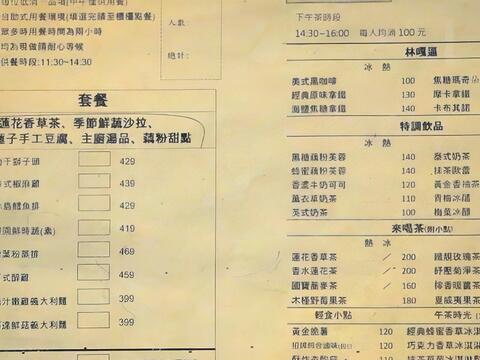 自助式用餐環境(填選完請至櫃檯點餐)
眾多時用餐時間為兩小時
均為現做請耐心等候
供餐時段:11:30~14:30
人數:
總計:
套餐
蓮花香草茶、季節鮮蔬沙拉、
蓮子手工豆腐、主廚湯品、藕粉甜點
獅子頭 429
式椒麻雞 439
鱈魚排 429
鮮時蔬(素) 419
葉粉蒸排 469
式醉雞 459
汁嫩雞義大利麵 399
鮮菇義大利麵 399
下午茶時段
14:30~16:00 每人均消 100 元
林嘎逼
冰 熱
美式黑咖啡 100 焦糖瑪奇
經典原味拿鐵 130 摩卡拿鐵
海鹽焦糖拿鐵 140 卡布其諾
特調飲品
冰 熱
黑糖藕粉芙蓉 140 泰式奶茶
蜂蜜藕粉芙蓉 140 抹茶歐蕾
香濃牛奶可可 120 黃金香柚茶
薰衣草奶茶 110 青梅冰醋
英式奶茶 100 梅菓冰醋
來喝茶(附小點)
熱 冰
蓮花香草茶 / 200 鐵觀玫瑰茶
香水蓮花茶 / 200 紓壓菊淨茶
國寶蕎麥茶 / 160 檸香暖薑茶
木槿野莓果茶 180 夏威夷果茶
輕食小點 午茶時光
黃金脆薯 120 經典蜂蜜香草冰淇
120 巧克力香草冰淇淋
110 抹茶草莓香草冰淇